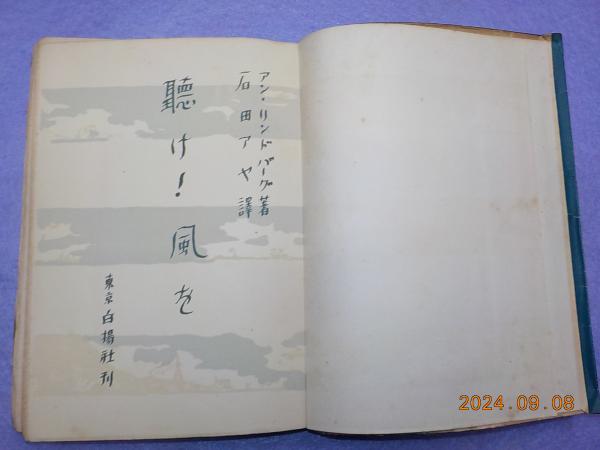 アン・リンドバーグ著
石田アヤ譯
聴け！風を
東京白揚社刊
2024.09.08